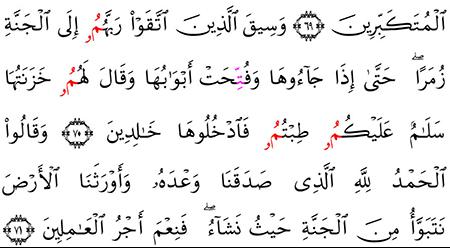 ٱلْمُتَكَبِّرِينَ ٦٩ وَسِيقَ ٱلَّذِينَ ٱتَّقَوْا۟ رَبَّهُمُۥ إِلَى ٱلْجَنَّةِ
زُمَرًا ۖ حَتَّىٰ إِذَا جَآءُوهَا وَفُتِّحَتْ أَبْوَٰبُهَا وَقَالَ لَهُمُۥ خَزَنَتُهَا
سَلَٰمٌ عَلَيْكُمُۥ طِبْتُمُۥ فَٱدْخُلُوهَا خَٰلِدِينَ ٧٠ وَقَالُوا۟
ٱلْحَمْدُ لِلَّهِ ٱلَّذِى صَدَقَنَا وَعْدَهُۥ وَأَوْرَثَنَا ٱلْأَرْضَ
نَتَبَوَّأُ مِنَ ٱلْجَنَّةِ حَيْثُ نَشَآءُ ۖ فَنِعْمَ أَجْرُ ٱلْعَٰمِلِينَ ٧١